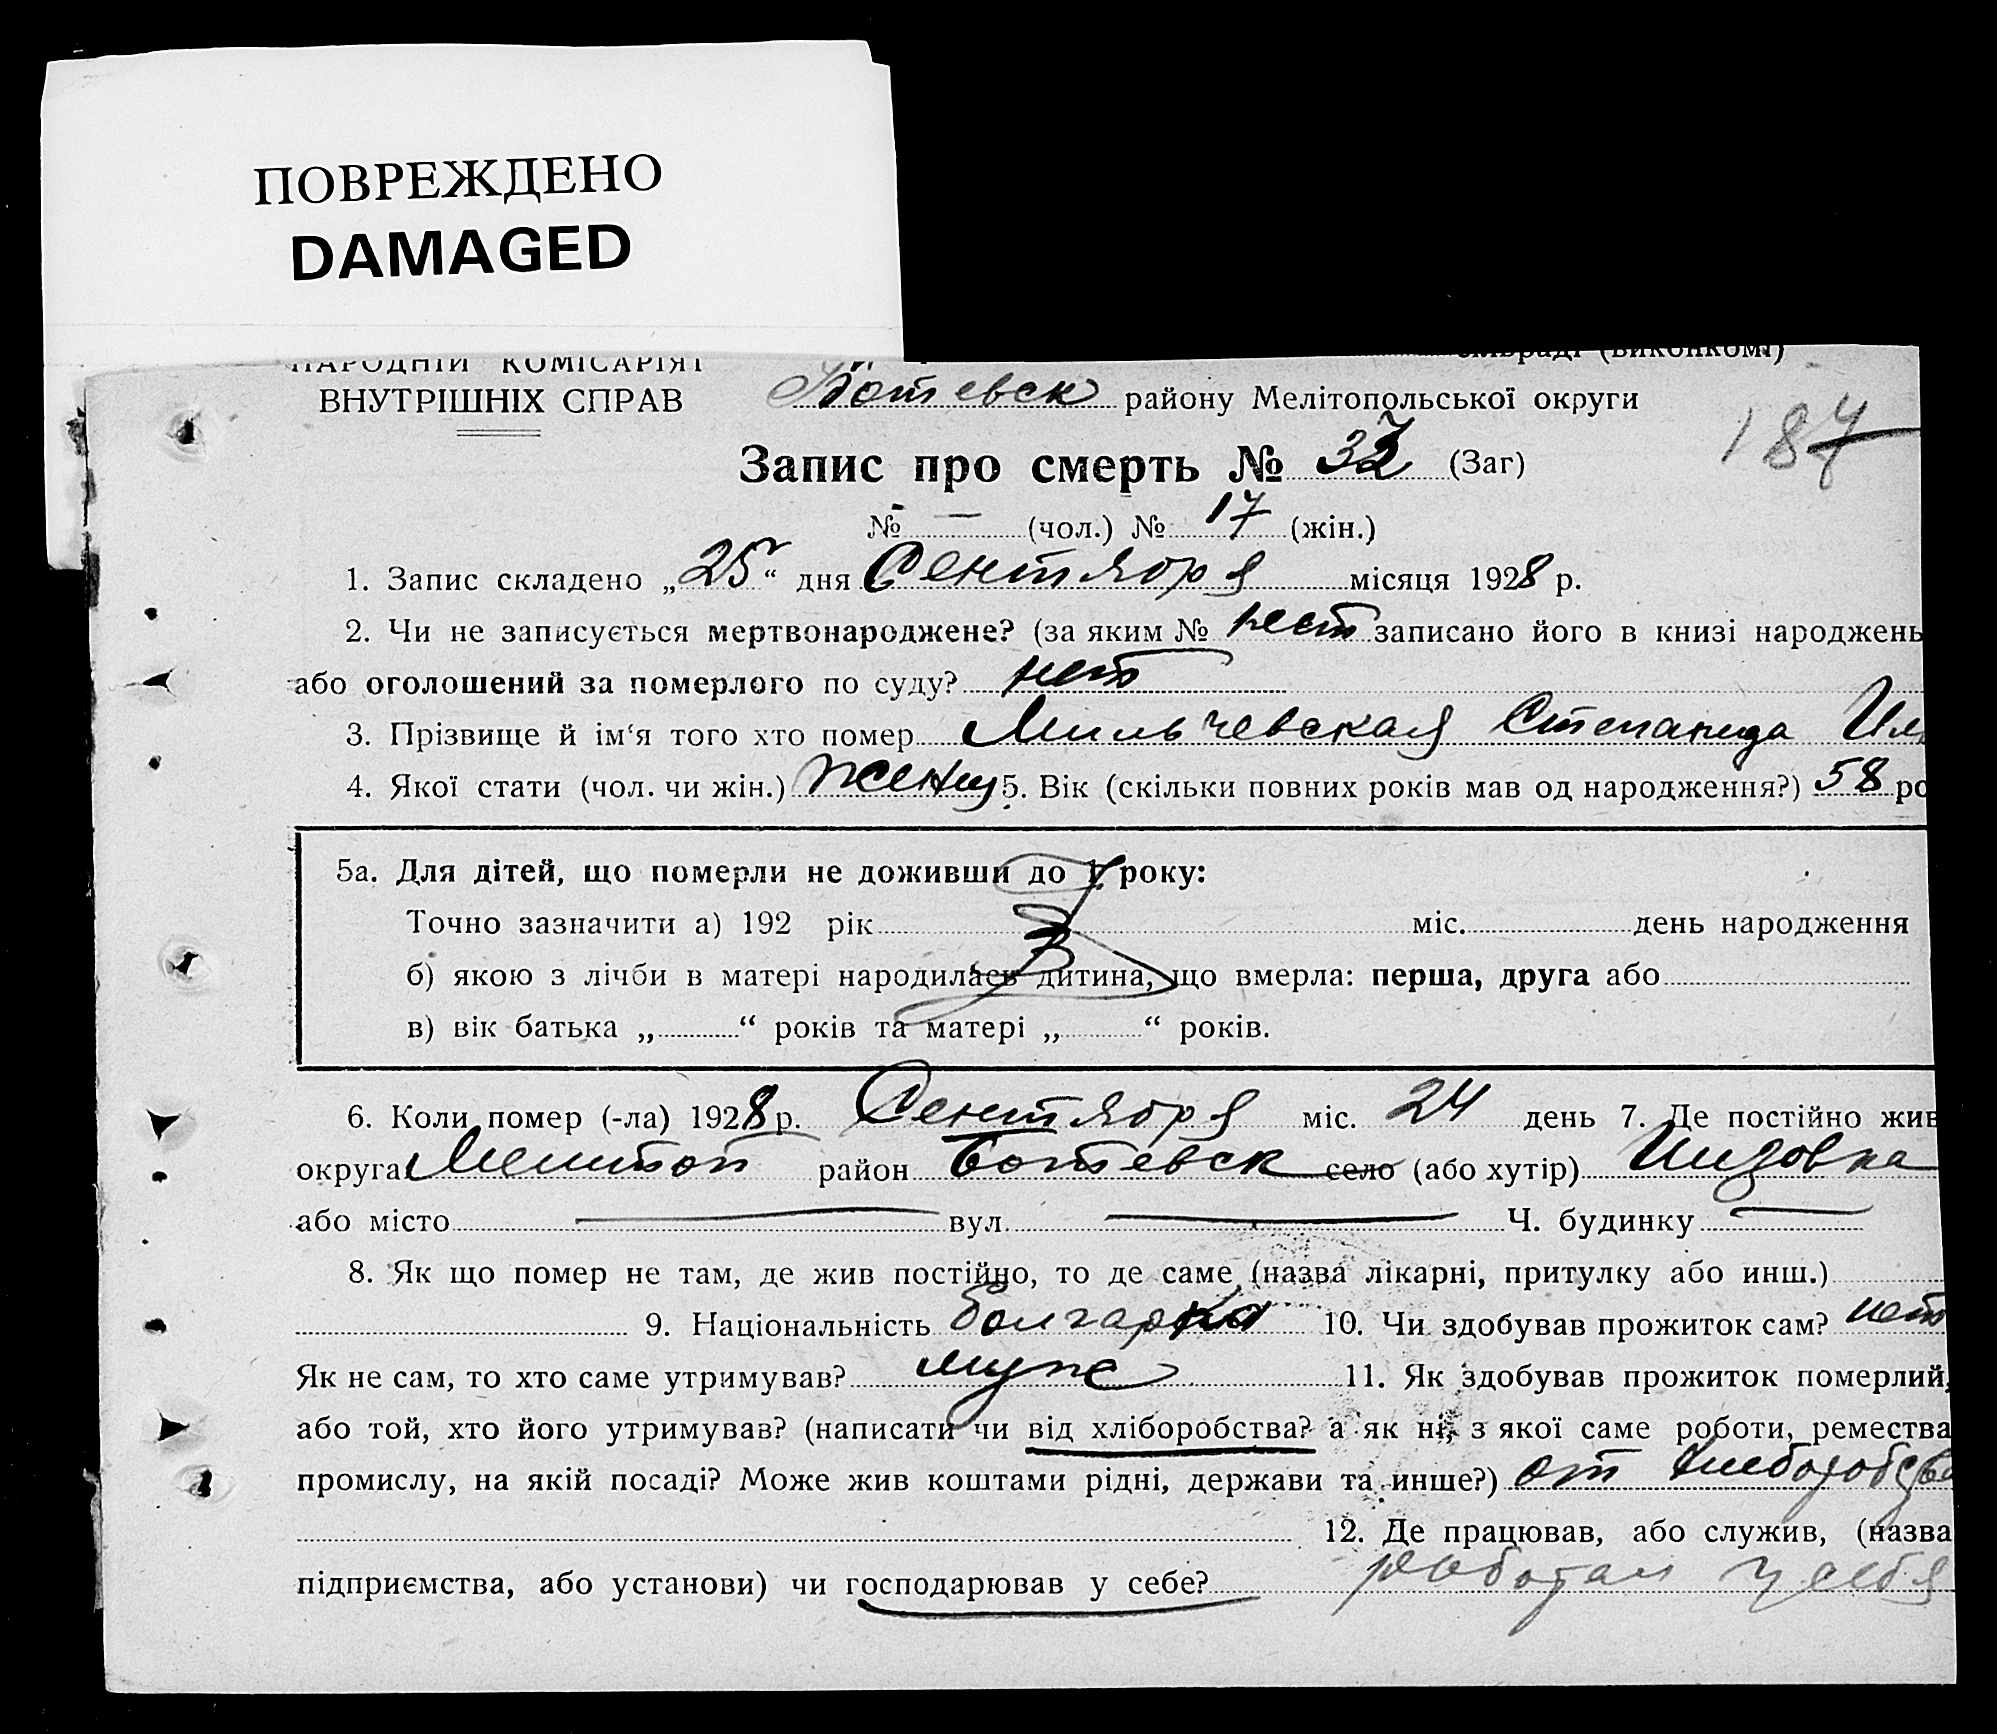 ПОВРЕЖДЕНО
DAMAGED
НАРОДНІЙ КОМІСАРІЯТ
(виконкомі)
ВНУТРІШНІХ СПРАВ Ботевск району Мелітопольської округи
187
Запис про смерть № 37 (Заг)
№ — (чол.) № 17 (жін.)
1. Запис складено „25“ дня Сентября місяця 1928 р.
2. Чи не записується мертвонароджене? (за яким № нет записано його в книзі народжень
або оголошений за померлого по суду? нет
3. Прізвище й ім‘я того хто помер Мильчевская Степанида Ил
4. Якої стати (чол. чи жін.) женщ 5. Вік (скільки повних років мав од народження?) 58 ро
5а. Для дітей, що померли не доживши до 1 року:
Точно зазначити а) 192 рік міс. день народження
б) якою з лічби в матері народилась дитина, що вмерла: перша, друга або
в) вік батька „ “ років та матері „ “ років.
6. Коли помер (-ла) 1928 р. Сентября міс. 24 день 7. Де постійно жив
округа Мелитоп район Ботевск село (або хутір)
або місто — вул. — Ч. будинку —
8. Як що помер не там, де жив постійно, то де саме (назва лікарні, притулку або инш.)
9. Національність болгарка 10. Чи здобував прожиток сам? нет
Як не сам, то хто саме утримував? муж 11. Як здобував прожиток померлий,
або той, хто його утримував? (написати чи від хліборобства? а як ні, з якої саме роботи, ремества
промислу, на якій посаді? Може жив коштами рідні, держави та инше?) от хлеборобства
12. Де працював, або служив, (назва
підприємства, або установи) чи господарював у себе? работал у себя